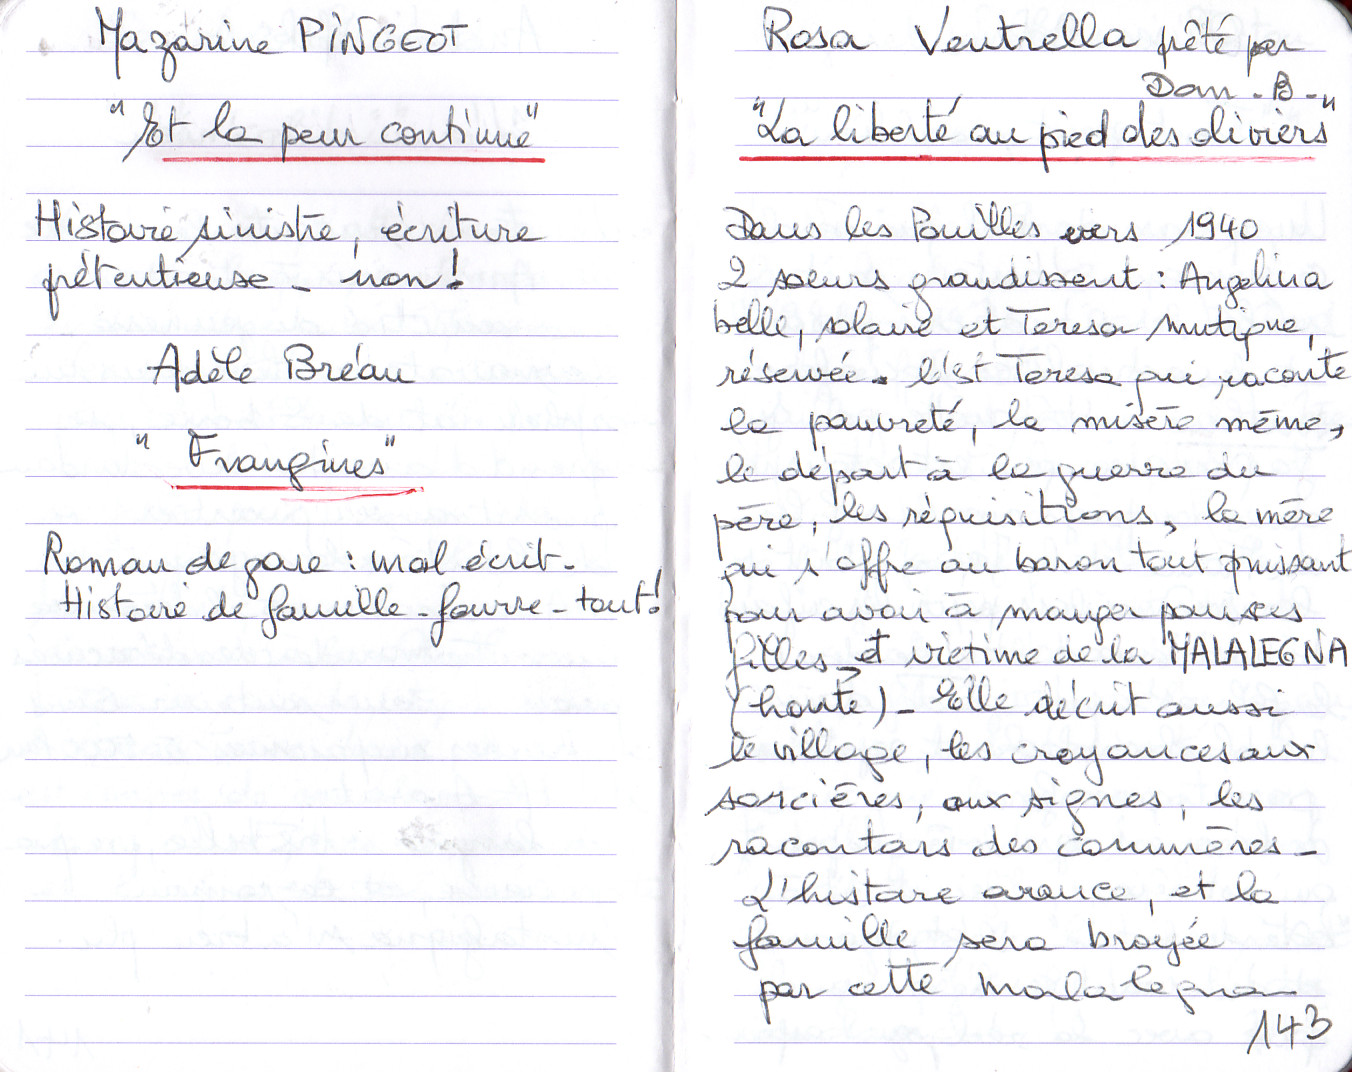 Mazarine PINGEOT
"Et la peur continue"
Histoire sinistre, écriture
prétentieuse - non!
Adèle Bréau
"Frangines"
Roman de gare : mal écrit -
Histoire de famille - fourre-tout!
Rosa Ventrella prêté par
Dom - B -
"La liberté au pied des oliviers"
Dans les Pouilles vers 1940
2 soeurs grandissent : Angelina
belle, solaire et Teresa mutique,
réservée. C'est Teresa qui raconte
la pauvreté, la misère même,
le départ à la guerre du
père, les réquisitions, la mère
qui s'offre au baron tout puissant
pour avoir à manger pour ses
filles - et victime de la MALALEGNA
(honte) - Elle décrit aussi
le village, les croyances aux
sorcières, aux signes, les
racontars des commères -
L'histoire avance, et la
famille sera broyée
par cette malalegna
143